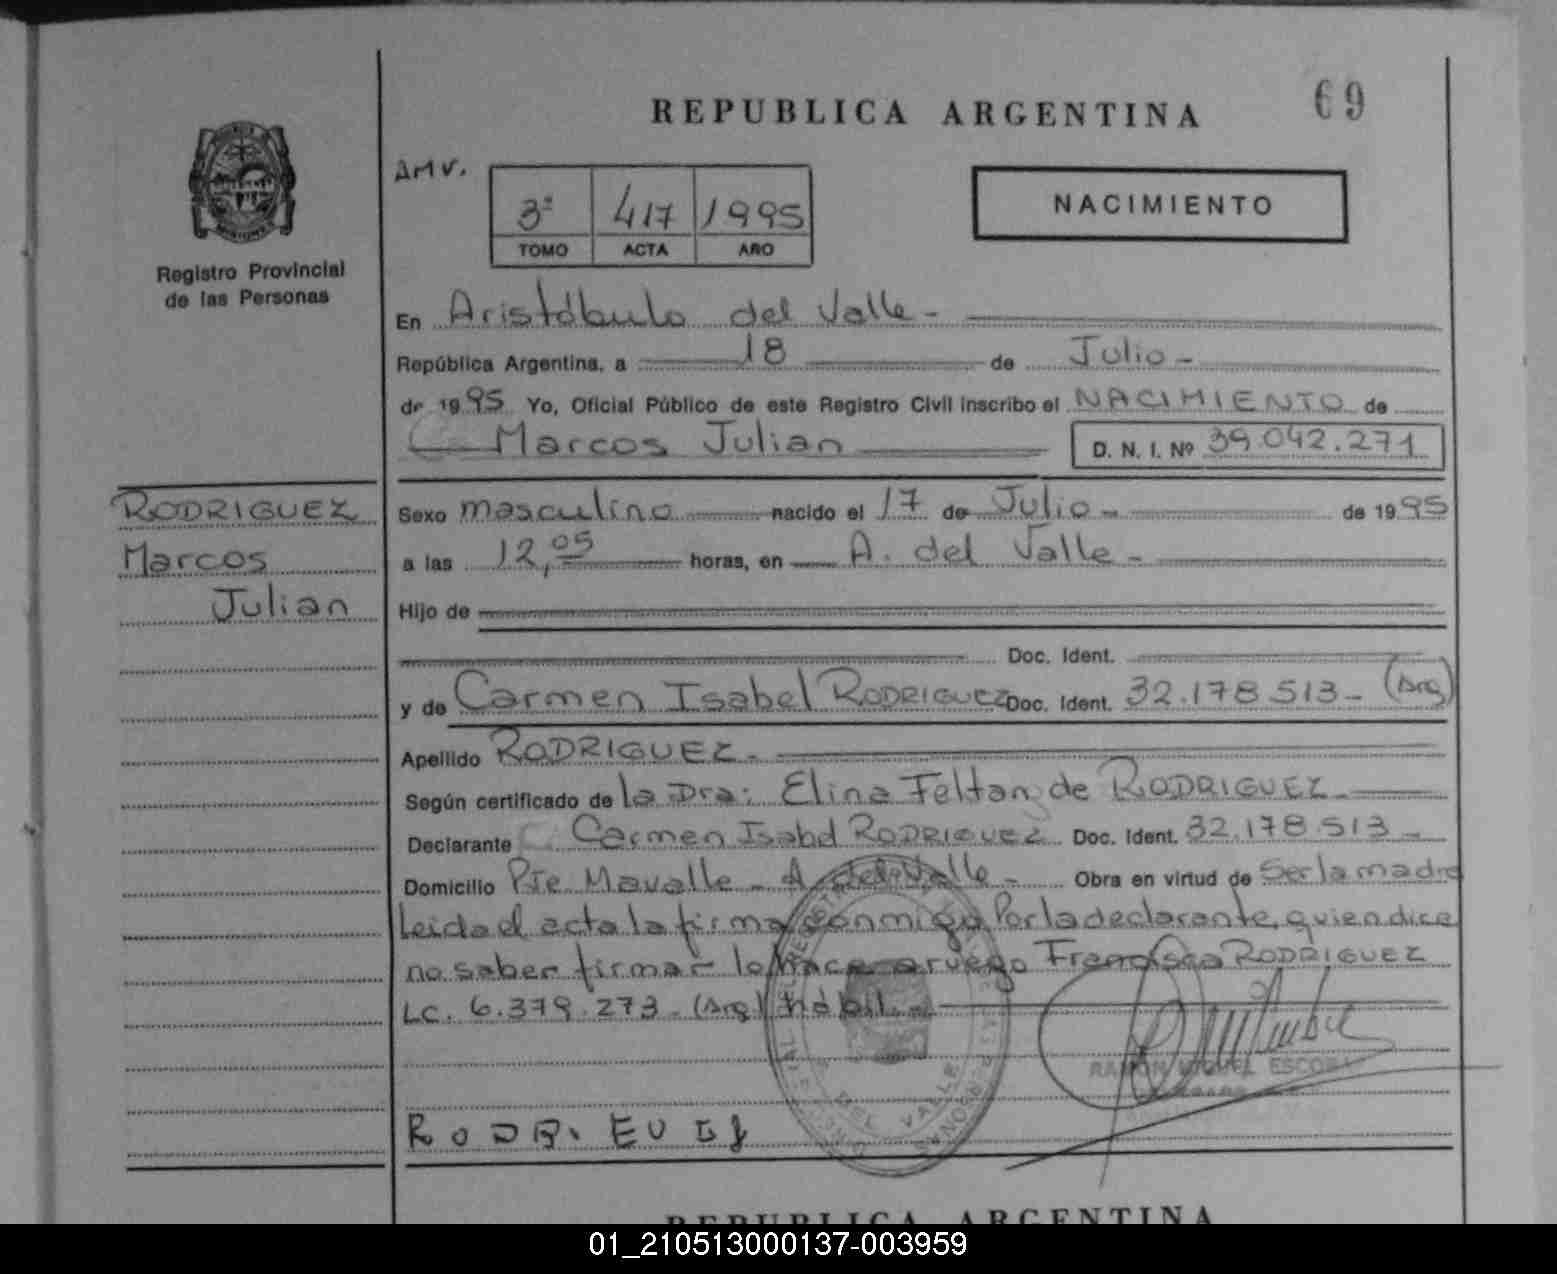 REPUBLICA ARGENTINA
69
Registro Provincial
de las Personas
AMV.
3º 417 1995
TOMO ACTA AÑO
NACIMIENTO
En Aristóbulo del Valle -
República Argentina, a 18 de Julio -
de 1995 Yo, Oficial Público de este Registro Civil inscribo el NACIMIENTO de
Marcos Julian D. N. I. Nº 39.042.271
RODRIGUEZ
Marcos
Julian
Sexo masculino nacido el 17 de Julio - de 1995
a las 12,05 horas, en A. del Valle -
Hijo de
Doc. Ident.
y de Carmen Isabel RODRIGUEZ Doc. Ident. 32.178.513 - (Arg)
Apellido RODRIGUEZ -
Según certificado de la Dra: Elina Feltan de RODRIGUEZ -
Declarante Carmen Isabel RODRIGUEZ Doc. Ident. 32.178.513 -
Domicilio Pje Mavalle - A del Valle - Obra en virtud de Ser la madre
Leida el acta la firma conmigo Por la declarante, quien dice
no saber firmar lo hace a ruego Francisca RODRIGUEZ
LC. 6.379.273 - (Arg) hábil. -
RAMON MIGUEL ESCOBAR
DEL VALLE
RODRI EUEZ
REPUBLICA ARGENTINA
01_210513000137-003959